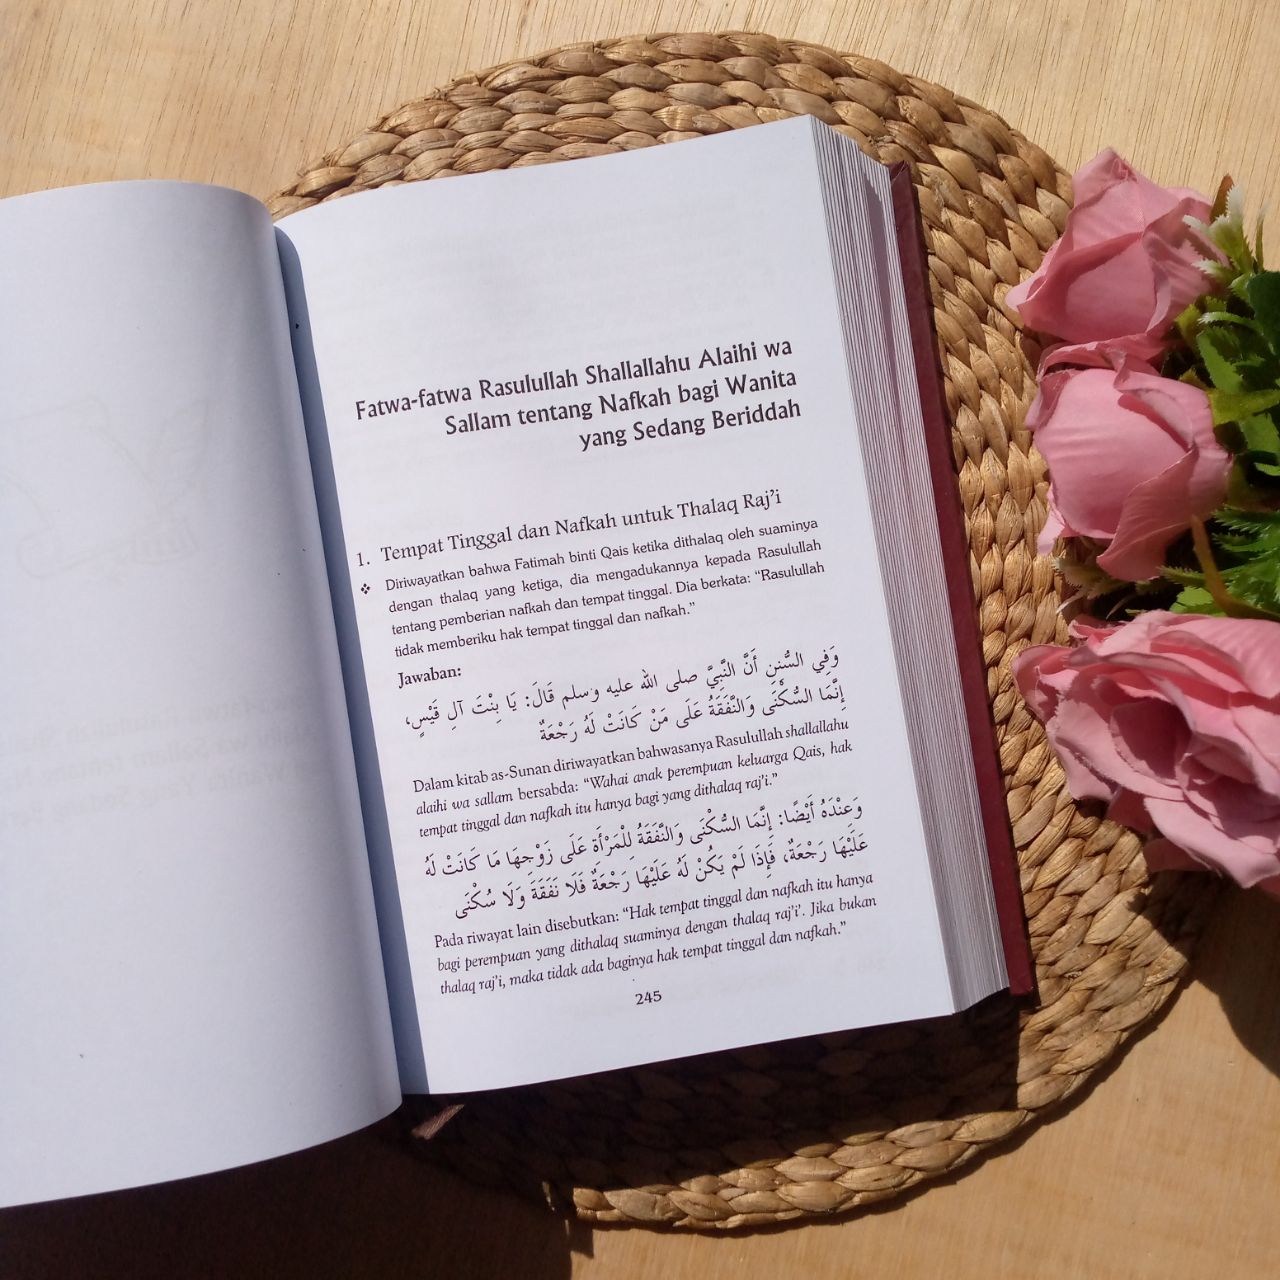 Fatwa-fatwa Rasulullah Shallallahu Alaihi wa
Sallam tentang Nafkah bagi Wanita
yang Sedang Beriddah
1. Tempat Tinggal dan Nafkah untuk Thalaq Raj'i
❖ Diriwayatkan bahwa Fatimah binti Qais ketika dithalaq oleh suaminya
dengan thalaq yang ketiga, dia mengadukannya kepada Rasulullah
tentang pemberian nafkah dan tempat tinggal. Dia berkata: “Rasulullah
tidak memberiku hak tempat tinggal dan nafkah.”
Jawaban:
وَفِي السُّنَنِ أَنَّ النَّبِيَّ صلى الله عليه وسلم قَالَ: يَا بِنْتَ آلِ قَيْسٍ،
إِنَّمَا السُّكْنَى وَالنَّفَقَةُ عَلَى مَنْ كَانَتْ لَهُ رَجْعَةٌ
Dalam kitab as-Sunan diriwayatkan bahwasanya Rasulullah shallallahu
alaihi wa sallam bersabda: “Wahai anak perempuan keluarga Qais, hak
tempat tinggal dan nafkah itu hanya bagi yang dithalaq raj'i.”
وَعِنْدَهُ أَيْضًا: إِنَّمَا السُّكْنَى وَالنَّفَقَةُ لِلْمَرْأَةِ عَلَى زَوْجِهَا مَا كَانَتْ لَهُ
عَلَيْهَا رَجْعَةٌ، فَإِذَا لَمْ يَكُنْ لَهُ عَلَيْهَا رَجْعَةٌ فَلَا نَفَقَةَ وَلَا سُكْنَى
Pada riwayat lain disebutkan: “Hak tempat tinggal dan nafkah itu hanya
bagi perempuan yang dithalaq suaminya dengan thalaq raj'i'. Jika bukan
thalaq raj'i, maka tidak ada baginya hak tempat tinggal dan nafkah.”
245